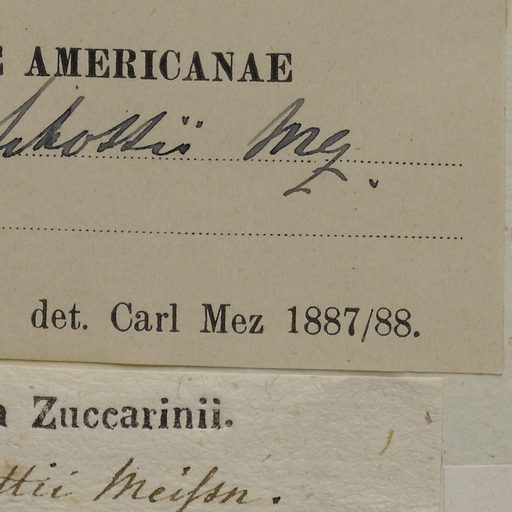 E AMERICANAE
Schottii Mez.
det. Carl Mez 1887/88.
a Zuccarinii.
ttii Meissn.